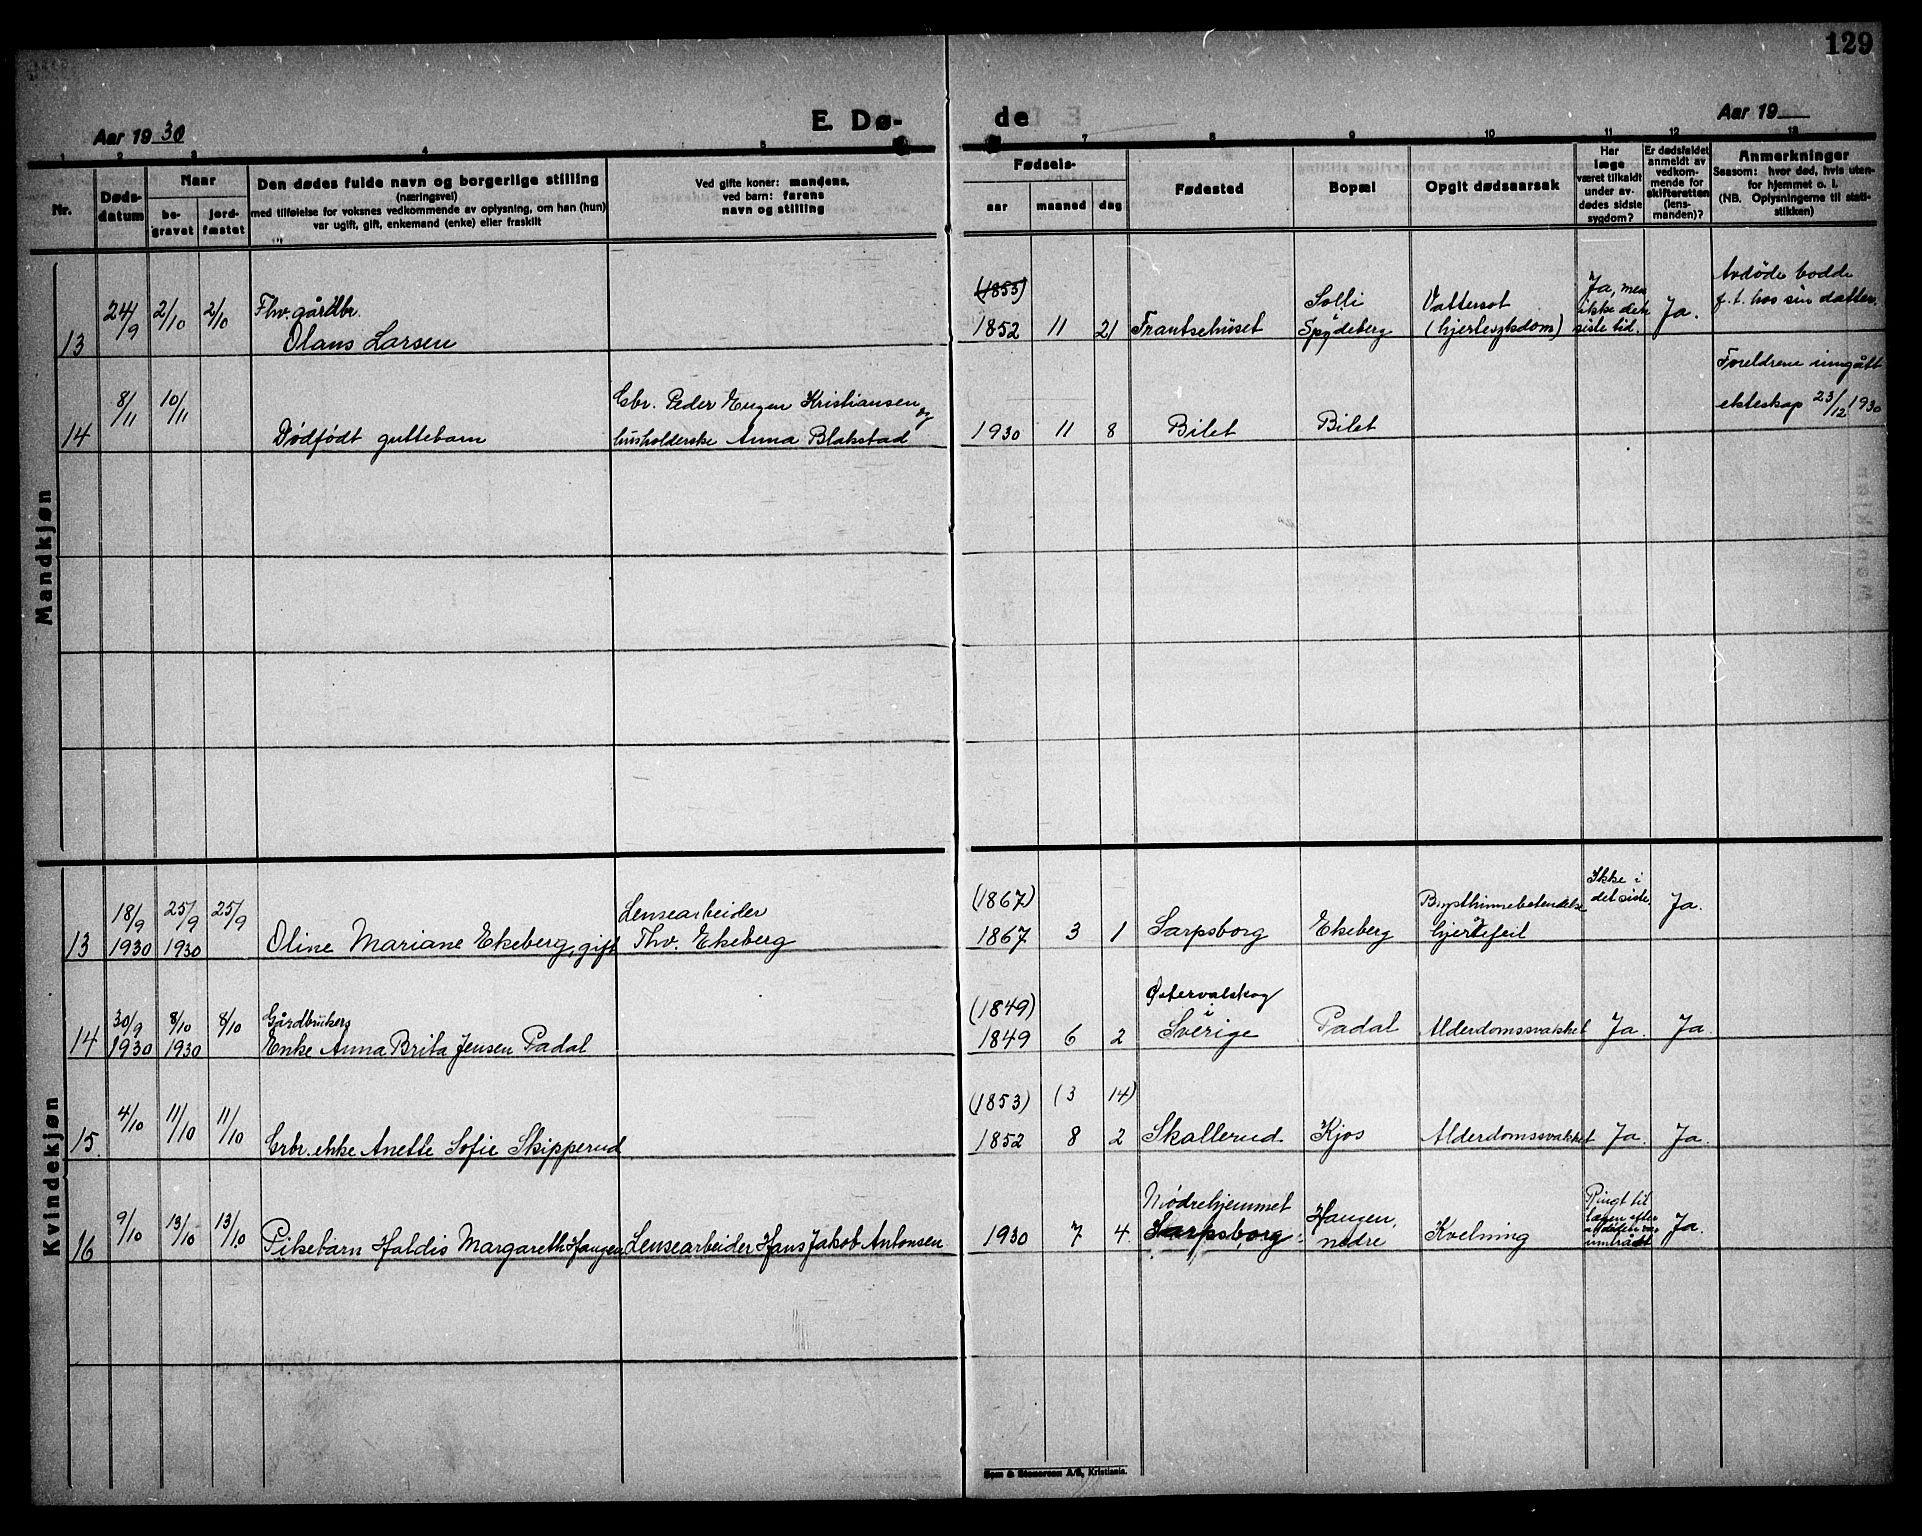 129
Aar 1930
E. Dø-
de
Aar 19
1 2 3 4 5 7 8 9 10 11 12 13
Nr.
Døds-
datum
Naar
be-
gravet
jord-
fæstet
Den dødes fulde navn og borgerlige stilling
(næringsvei)
med tilføielse for voksnes vedkommende av oplysning, om han (hun)
var ugift, gift, enkemand (enke) eller fraskilt
Ved gifte koner: mandens,
ved barn: farens
navn og stilling
Fødsels-
aar
maaned
dag
Fødested
Bopæl
Opgit dødsaarsak
Har
læge
været tilkaldt
under av-
dødes sidste
sygdom?
Er dødsfaldet
anmeldt av
vedkom-
mende for
skifteretten
(lens-
manden)?
Anmerkninger
Saasom: hvor død, hvis uten-
for hjemmet o. l.
(NB. Oplysningerne til stati-
stikken)
Mandkjøn
13 24/9 2/10 2/10
Fhv. gårdbr.
Olaus Larsen
(1853)
1852 11 21 Frantsehuset
Solli
i
Spydeberg
Vattersot
(hjertesykdom)
Ja, men
ikke den
siste tid.
Ja.
Avdøde bodde
f. t. hos sin datter.
14 8/11 10/11
Dødfødt guttebarn
Gbr. Peder Eugen Kristiansen og
husholderske Anna Blakstad
1930 11 8 Bilet Bilet
Foreldrene inngått
ekteskap 23/12 1930
Kvindekjøn
13 18/9 1930 25/9 1930 25/9
Oline Mariane Ekeberg, gift
Lensearbeider
Thv. Ekeberg
(1867)
1867 3 1 Sarpsborg Ekeberg
Brysthinnebetendelse
hjertefeil
Ikke i
det siste
Ja.
14 30/9 1930 8/10 1930 8/10
Gårdbrukers
Enke Anna Brita Jensen Padal
(1849)
1849 6 2
Østervalskog
i
Sverige
Padal Alderdomssvakhet Ja. Ja.
15. 4/10 11/10 11/10
Grbr. enke Anette Sofie Skipperud
(1853) (3 14)
1852 8 2 Skallerud Kjos Alderdomssvakhet Ja. Ja.
16 9/10 13/10 13/10
Pikebarn Haldis Margareth Haugen Lensearbeider Hans Jakob Antonsen
1930 7 4
Mødrehjemmet
Sarpsborg
Haugen,
nedre
Kvelning
Ringt til
lægen efter
at døden var
inntrådt
Ja.
Sem & Stenersen A/S, Kristiania.